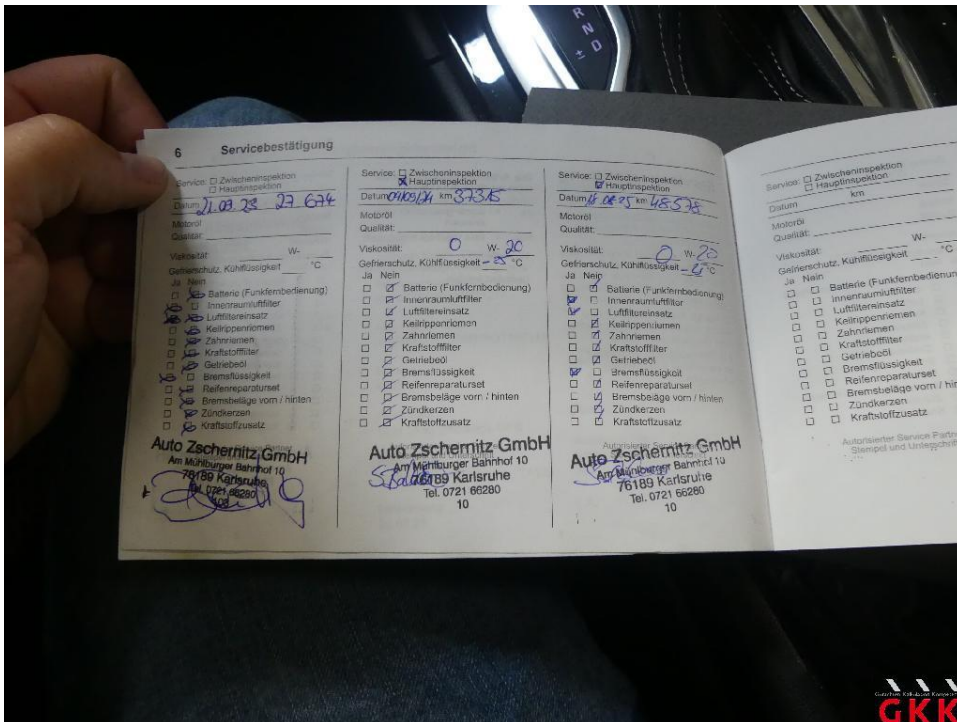 R
N
D
±
6 Servicebestätigung
Service: Zwischeninspektion
Hauptinspektion
Datum 21.09.23 27 674
Motoröl
Qualität:
Viskosität: W-
Gefrierschutz, Kühlflüssigkeit °C
Ja Nein
Batterie (Funkfernbedienung)
Innenraumluftfilter
Luftfiltereinsatz
Keilrippenriemen
Zahnriemen
Kraftstofffilter
Getriebeöl
Bremsflüssigkeit
Reifenreparaturset
Bremsbeläge vorn / hinten
Zündkerzen
Kraftstoffzusatz
Auto Zschernitz GmbH
Am Mühlburger Bahnhof 10
76189 Karlsruhe
Tel. 0721 66280
Service: Zwischeninspektion
Hauptinspektion
Datum 04/09/24 km 37315
Motoröl
Qualität:
Viskosität: 0 W- 20
Gefrierschutz, Kühlflüssigkeit °C
Ja Nein
Batterie (Funkfernbedienung)
Innenraumluftfilter
Luftfiltereinsatz
Keilrippenriemen
Zahnriemen
Kraftstofffilter
Getriebeöl
Bremsflüssigkeit
Reifenreparaturset
Bremsbeläge vorn / hinten
Zündkerzen
Kraftstoffzusatz
Auto Zschernitz GmbH
Am Mühlburger Bahnhof 10
76189 Karlsruhe
Tel. 0721 66280
10
Service: Zwischeninspektion
Hauptinspektion
Datum km 48578
Motoröl
Qualität:
Viskosität: 0 W-20
Gefrierschutz, Kühlflüssigkeit °C
Ja Nein
Batterie (Funkfernbedienung)
Innenraumluftfilter
Luftfiltereinsatz
Keilrippenriemen
Zahnriemen
Kraftstofffilter
Getriebeöl
Bremsflüssigkeit
Reifenreparaturset
Bremsbeläge vorn / hinten
Zündkerzen
Kraftstoffzusatz
Auto Zschernitz GmbH
Am Mühlburger Bahnhof 10
76189 Karlsruhe
Tel. 0721 66280
10
Service: Zwischeninspektion
Hauptinspektion
Datum km
Motoröl
Qualität:
Viskosität: W-
Gefrierschutz, Kühlflüssigkeit °C
Ja Nein
Batterie (Funkfernbedienung
Innenraumluftfilter
Luftfiltereinsatz
Keilrippenriemen
Zahnriemen
Kraftstofffilter
Getriebeöl
Bremsflüssigkeit
Reifenreparaturset
Bremsbeläge vorn / hin
Zündkerzen
Kraftstoffzusatz
Autorisierter Service Partn
Stempel und Unterschri
GKK